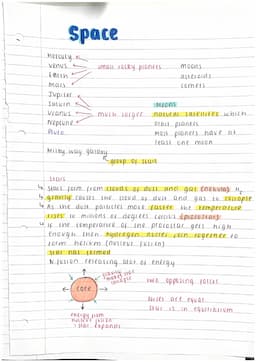 Space
Mercury
Venus
Earth
Mars
small rocky planets
moons
asteroids
comets
Jupiter
Saturn
Uranus
Neptune
much larger
Pluto
moons
natural satellites which
orbit planets
most planets have at
least one moon
Milky way galaxy
group of stars
stars
↳ stars form from clouds of dust and gas
↳ gravity causes the cloud of dust and gas to collapse
↳ As the dust particles move faster the temperature
rises to millions of degrees celsius (protostar)
↳ If the temperature of the protostar gets high
enough then hydrogen nuclei join together to
form helium (nuclear fusion)
star has formed
N.fusion releasing lots of energy
gravity
makes star
collapse
core
energy from
nuclear fusion
star expands
two opposing forces
forces are equal
star is in equilibrium